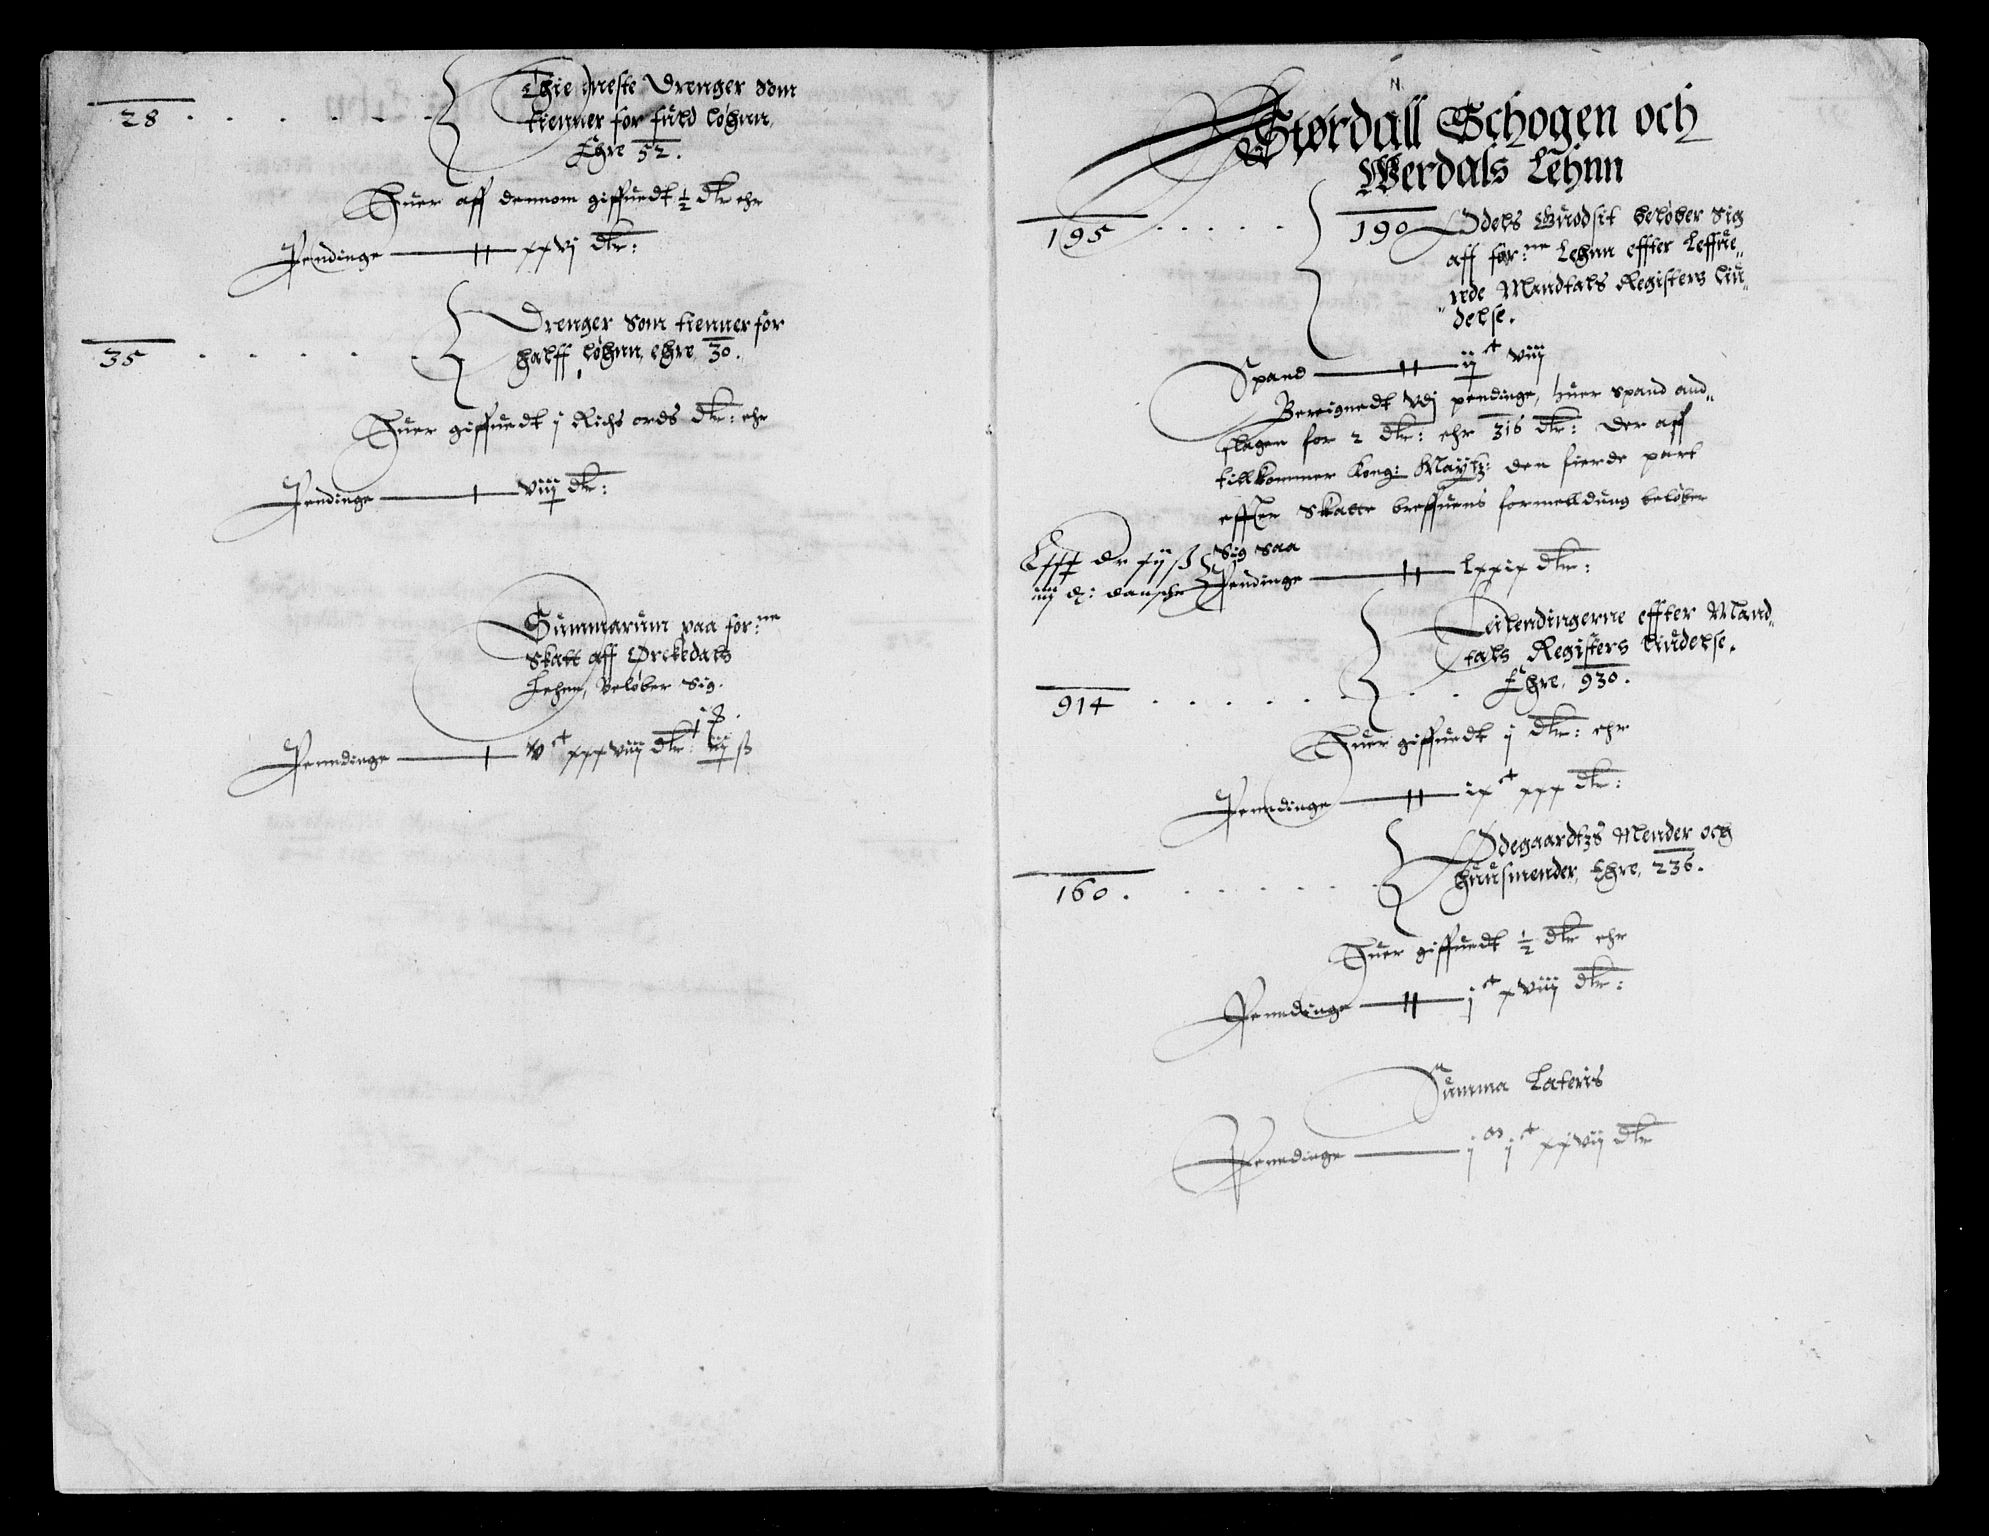 Thienneste Drenger Som
28 . . . . . . . tienner for fuld løhnn,
Ehre 52.
Huer aff dennom giffuedt ½ dlr ehr
Pendinge xxvj dlr:
Drenger Som tienner for
35 . . . . . . halff løhnn, ehre 30.
Huer giffuedt j Richs ordt dlr: ehr
Pendinge viij dlr:
Summarum paa for:ne
Skatt aff Ørckedals
Lehnn, Beløber Sig.
Penndinge v ct xxxviij dlr: iij ß

Størdall Schogen och
Werdals Lehnn
195 . . . . . 190 Odels Guodsit beløber Sig
aff for:ne Lehnn effter Leffue„
rede Mandtals Registers Liu„
„delse.
Spand ij ct viij
Bereignedt vdj pendinge, huer spand and„
slagen for 2 dlr: ehr 316 dlr: Der aff
tillkommer Kong: Maytz: den fierde part
effter Skatte breffuens formelldung beløber
Sig Saa
Pendinge lxxix dlr:
iiij dansche
Leilendingerne effter Mand„
tals Registers Liudelse.
914 . . . . . . . Ehre, 930.
Huer giffuedt j dlr: ehr
Penndinge ix ct xxx dlr:
Ødegaardtzs Mender och
160 . . . . . . . huusmender, Ehre, 236.
Huer giffuedt ½ dlr ehr
Penndinge j ct xviij dlr:
Summa Lateris
Penndinge j m j ct xxvij dlr